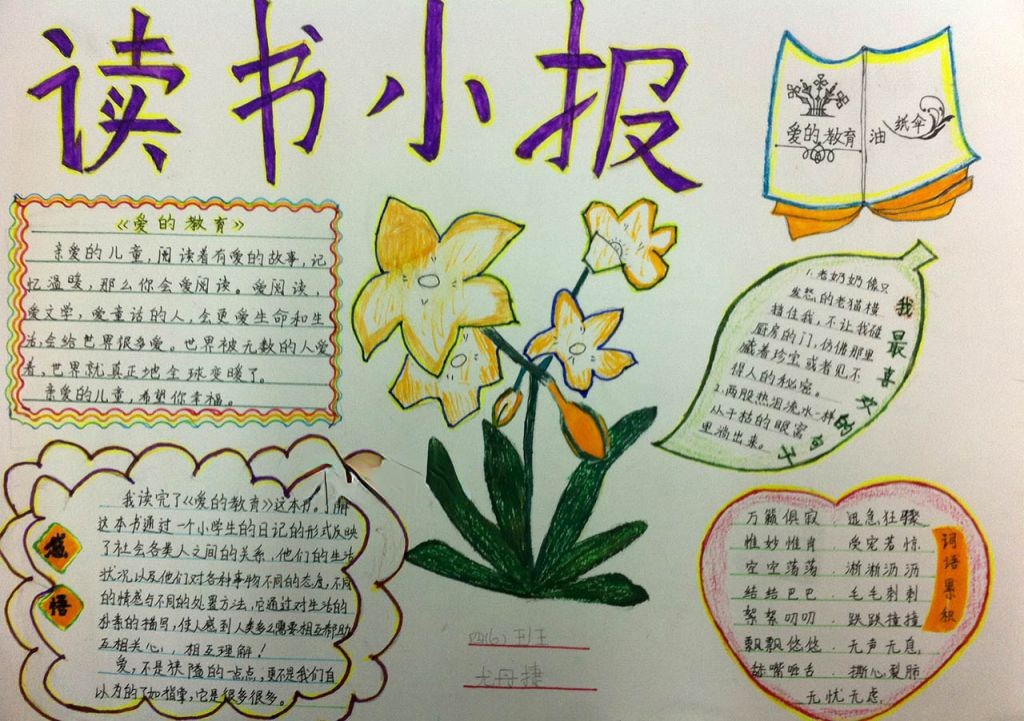 读书小报
爱的教育
油纸伞
《爱的教育》
亲爱的儿童，阅读着有爱的故事，记
忆温暖，那么你会爱阅读。爱阅读，
爱文学，爱童话的人，会更爱生命和生
活，会给世界很多爱。世界被无数的人爱
着，世界就真正地全球变暖了。
亲爱的儿童，希望你幸福。
我最喜欢的句子
1.老奶奶像只
发怒的老猫横
挡住我，不让我碰
厨房的门，仿佛那里
藏着珍宝或者见不
得人的秘密。
2.两股热泪流水一样
从干枯的眼窝
里淌出来。
感悟
我读完了《爱的教育》这本书。了解
这本书通过一个小学生的日记的形式反映
了社会各类人之间的关系，他们的生活
状况以及他们对各种事物不同的态度，不同
的情感与不同的处置方法，它通过对生活的
朴素的描写，使人感到人类多么需要相互帮助
互相关心，相互理解！
爱，不是狭隘的一点点，更不是我们自
以为的了如指掌，它是很多很多。
四(6)班
尤丹捷
词语累积
万籁俱寂 迅急狂骤
惟妙惟肖 受宠若惊
空空荡荡 淅淅沥沥
结结巴巴 毛毛刺刺
絮絮叨叨 跌跌撞撞
飘飘悠悠 无声无息
舔嘴咂舌 撕心裂肺
无忧无虑